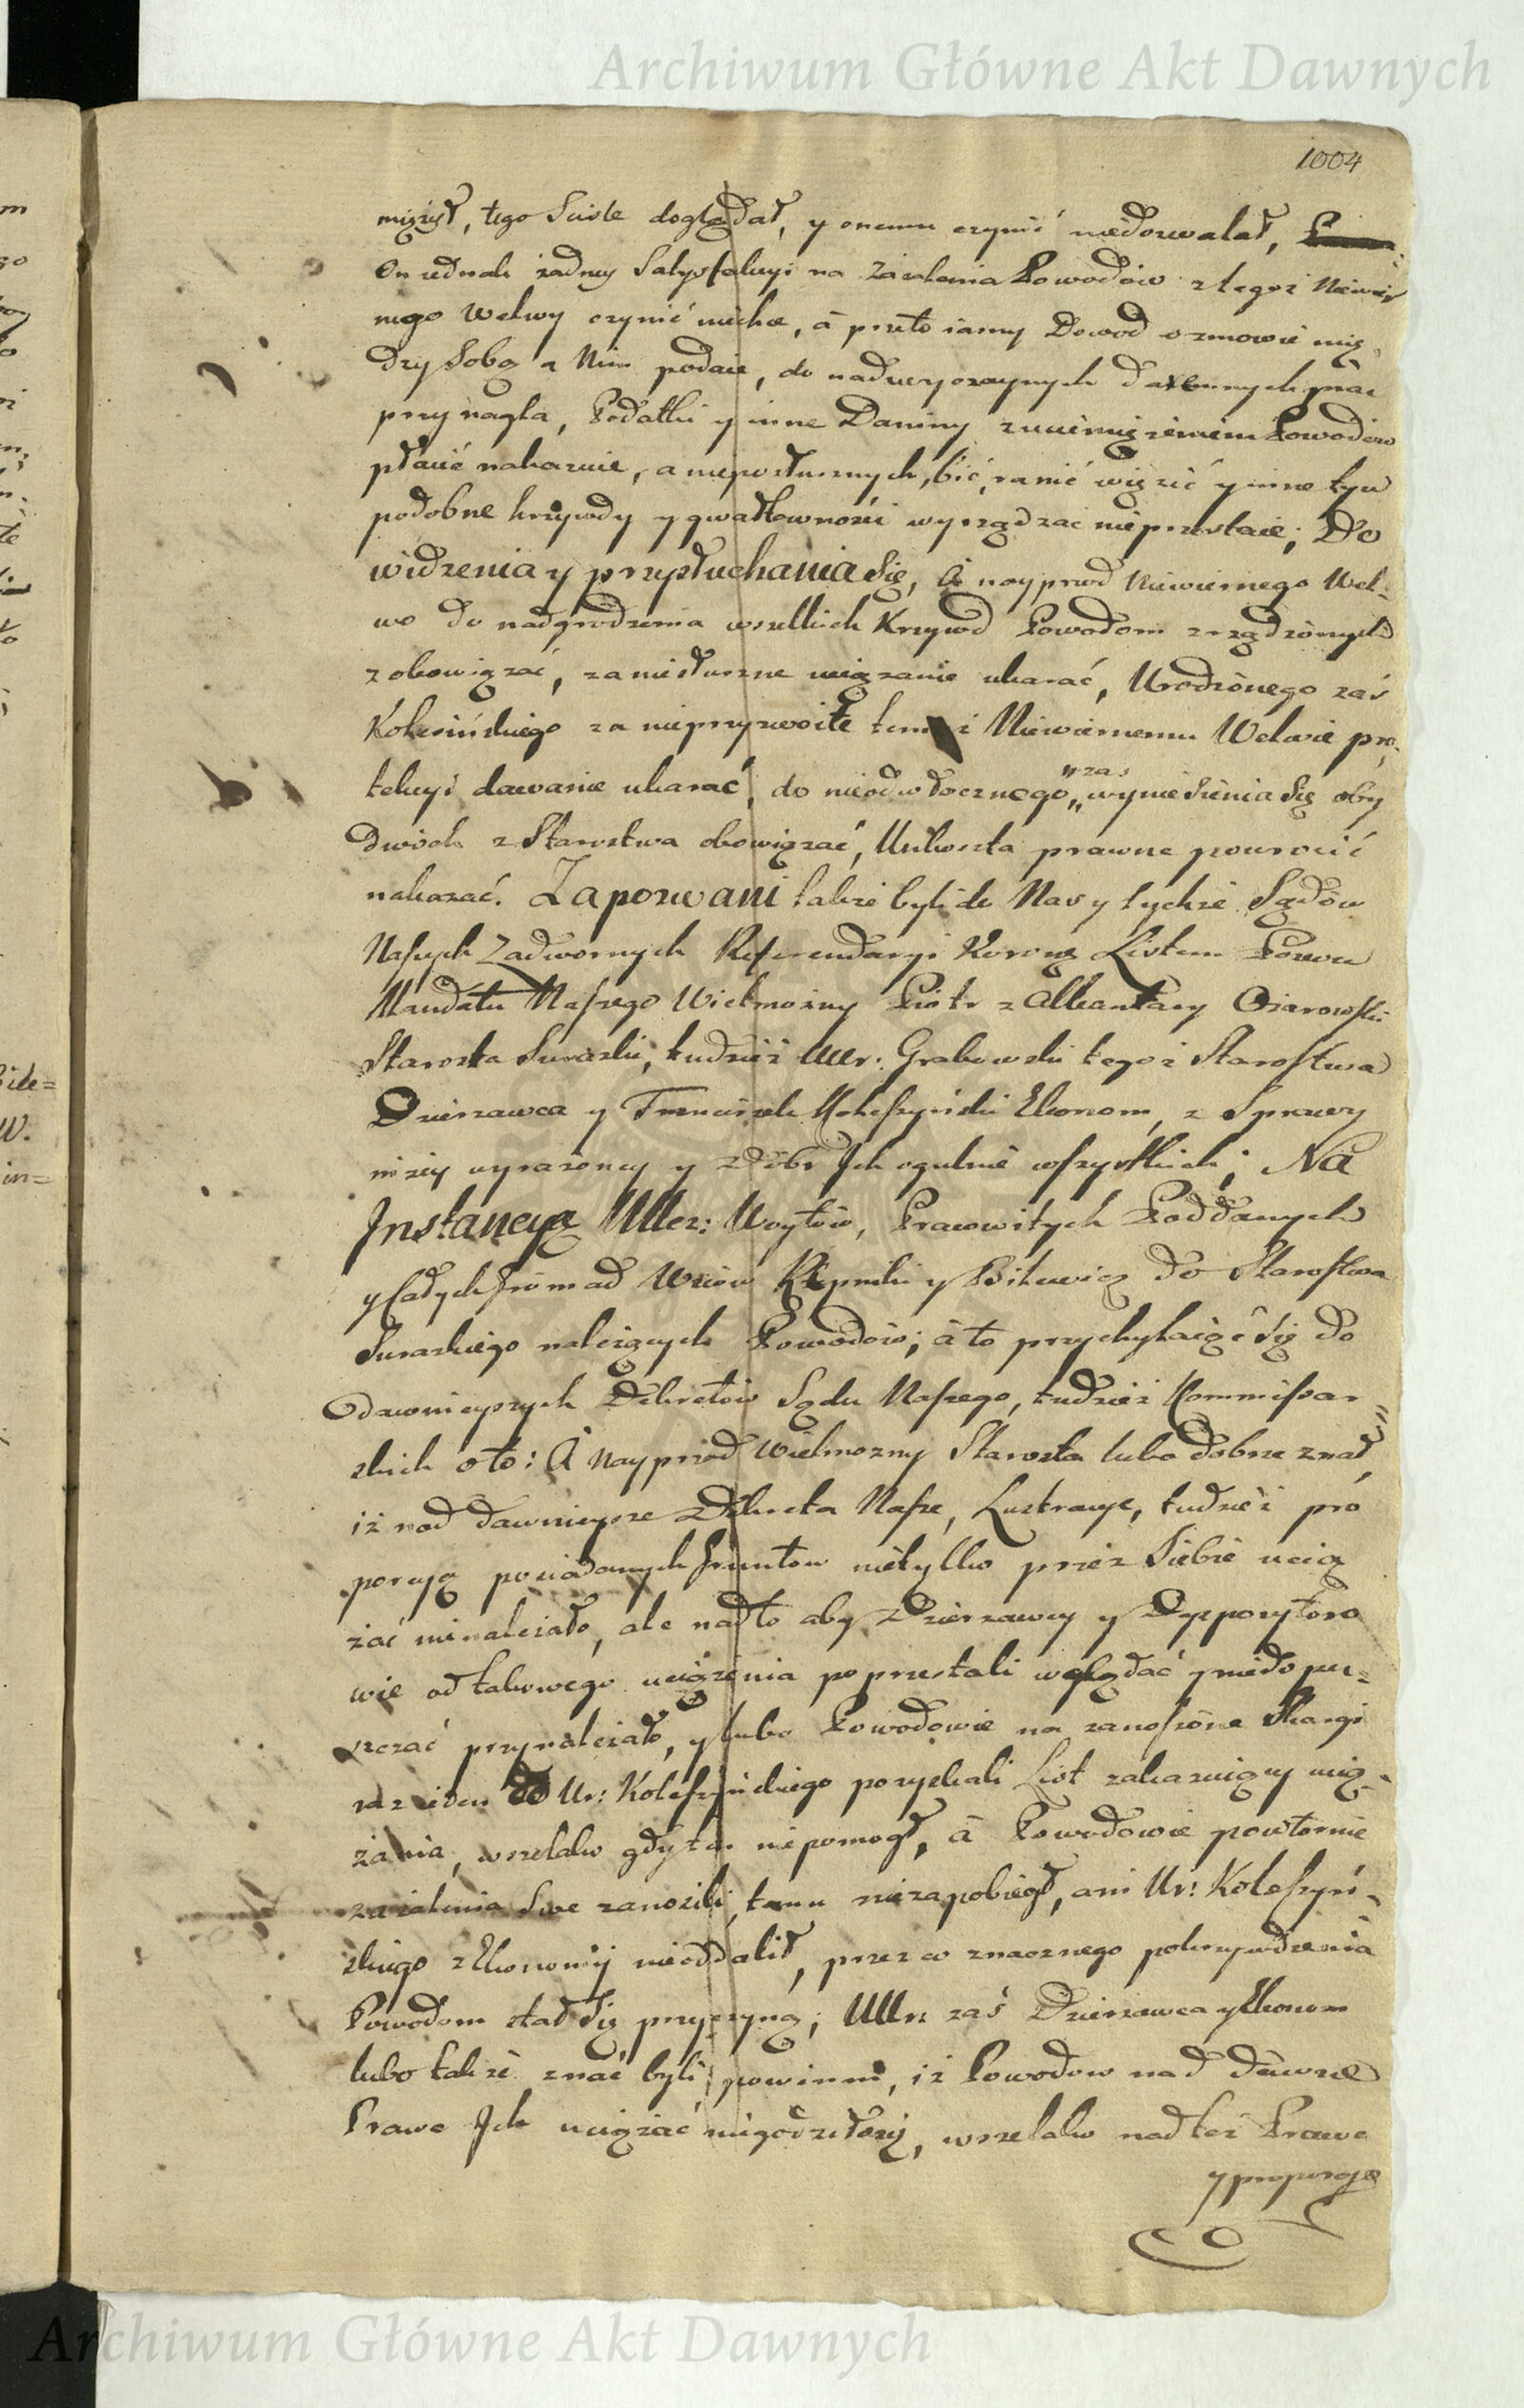 Archiwum Główne Akt Dawnych
1004
tego Scisle doglądał, y onemu czynić niedozwalał,
On iednak żadney Satysfakcyi na Zażalenia Powodów z tegoż Niewier
nego Welwy czynić niechce, á przeto iawny Dowod o zmowie mię
dzy Sobą a Nim podaie, do nadzwyczaynych daremnych prac
przynagla, Podatki y inne Daniny z uciemiężeniem Powodów
płacić nakazuie, a nieposłusznych, bić, ranić więzić y inne tym
podobne krzywdy y gwałtowności wyrządzac nieprzestaie; Do
widzenia y przysłuchania Się, A nayprzod Niewiernego Wel-
wo do nadgrodzenia wszelkich Krzywd Powodom zrządzonych
zobowiązać, za niesłuszne uciążanie ukarać, Urodzonego zaś
Kolesińskiego za nieprzyzwoite temuż Niewiernemu Welwie pro-
tekcyi dawanie ukarać, do nieodwłocznego „zaś wyniesienia Się oby
dwóch z Starostwa obowiązać, Unkoszta prawne powrocić
nakazać. Zapozwani także byli do Nas y tychże Sądów
Naszych Zadwornych Referendaryi Koronney Listem Pozwu
Mandatu Naszego Wielmożny Piotr z Alkantary Ożarowski
Starosta Suraski, tudzież Ur: Grabowski tegoż Starostwa
Dzierzawca y Franciszek Koleszyński Ekonom, z Sprawy
niżey wyrażoney y z Dóbr Ich ogulnie wszystkich; NA
Instancyą Woytów, Pracowitych Poddanych
y Całych Gromad Wsiów y do Starostwa
Suraskiego należących Powodów; á to przychylaiąc Się do
dawnieyszych Dekretów Sądu Naszego, tudzież Kommissar
skich oto: A Nayprzód Wielmożny Starosta lubo dobrze znał,
iż nad dawnieysze Dekreta Nasze, Lustracye, tudzież pro
porcyą posiadanych Gruntow nietylko przez Siebie ucią
żać nienależało, ale nadto aby Dzierzawcy y Dyspozytoro
wie od takowego uciążenia poprzestali wglądać y niedopu-
szczać przynależało, y lubo Powodowie na zanoszone Skargi
raz ieden do Ur: Koleszyńskiego pozyskali List zakazuiący ucią-
żania, wszelako gdy ten niepomogł, á Powodowie powtornie
zażalenia Swe zanosili, temu niezapobiegł, ani Ur: Koleszyń-
skiego z Ekonomij nieoddalił, przez co znacznego pokrzywdzenia
Powodom stał Się przyczyną; zaś Dzierzawca y Ekonom
lubo także znać byli powinni, iż Powodow nad dawne
Prawo Ich uciążać niegodziło się, wszelako nad też Prawo
y proporcyą
Archiwum Główne Akt Dawnych